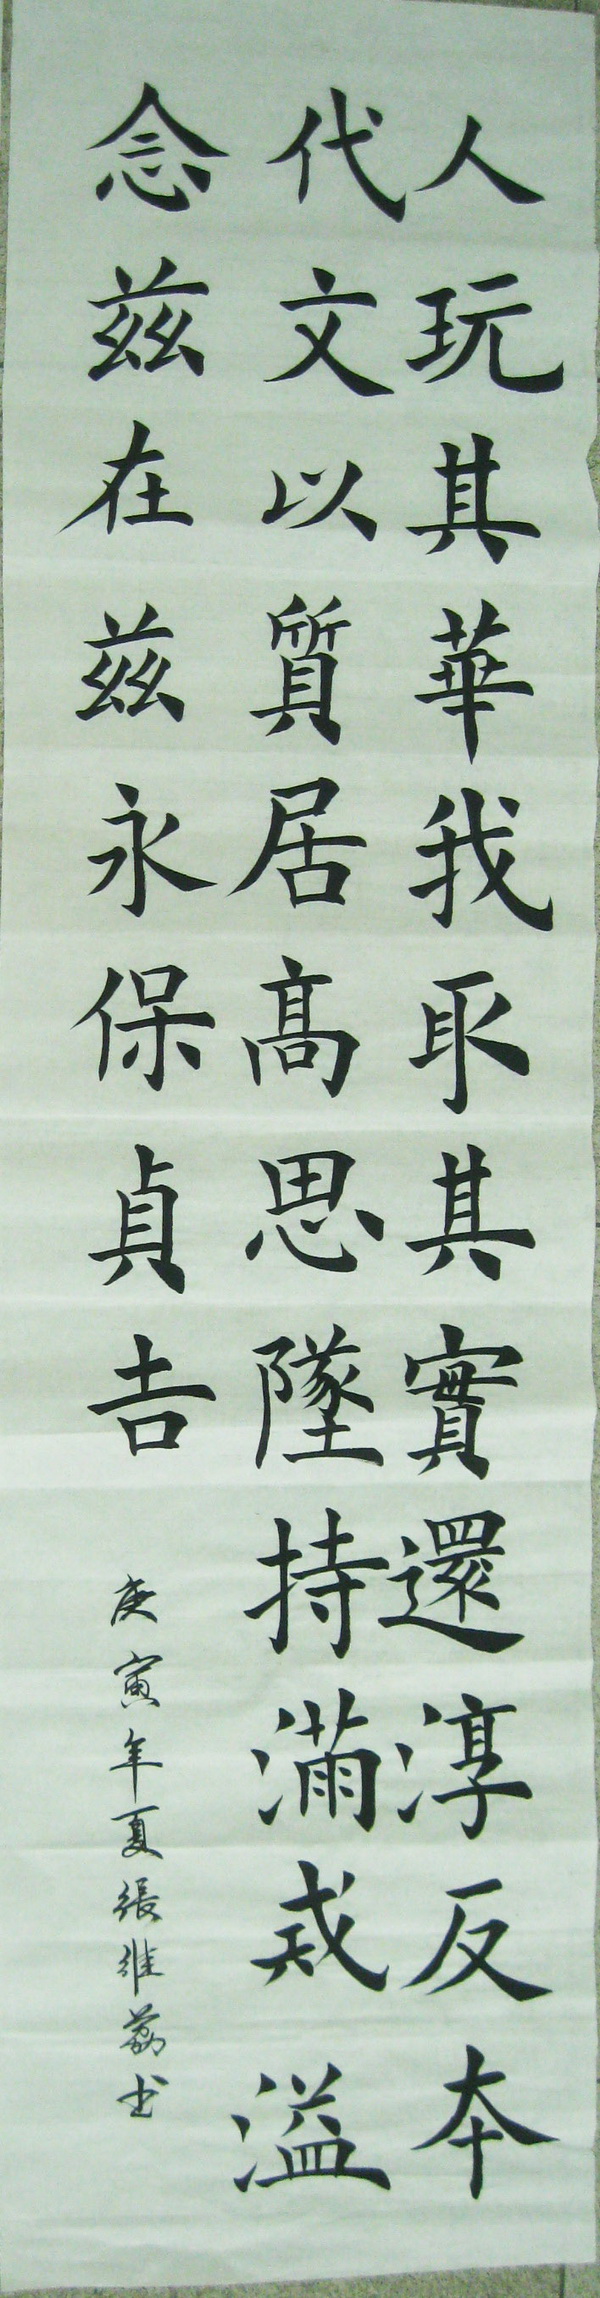 人玩其華我取其實還淳反本
代文以質居高思墜持滿戒溢
念茲在茲永保貞吉
庚寅年夏張維荔书